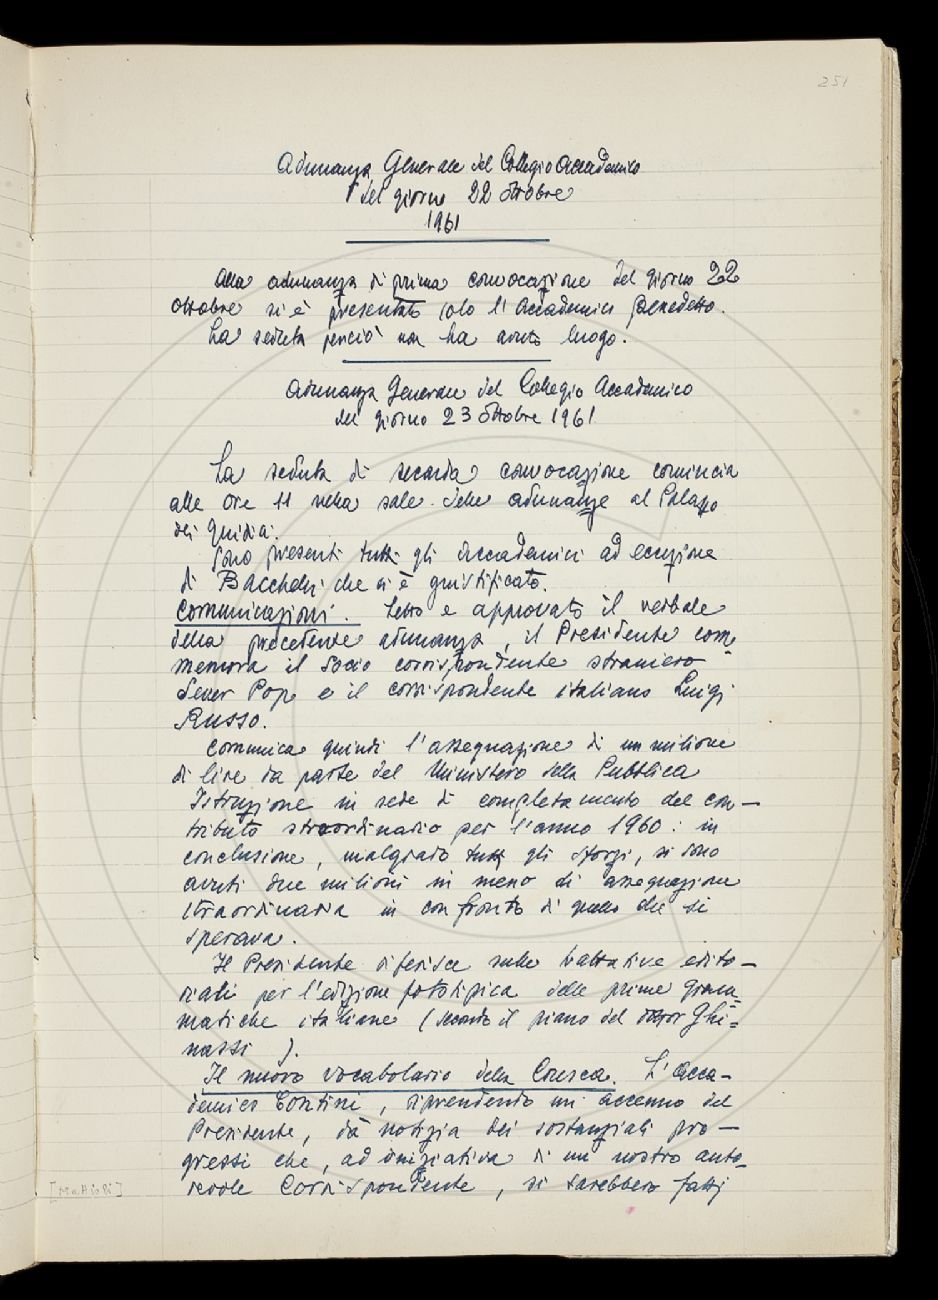 251
Adunanza Generale del Collegio Accademico
del giorno 22 ottobre
1961
Alla adunanza di prima convocazione del giorno 22
ottobre si è presentato solo l'Accademico Benedetto.
La seduta perciò non ha avuto luogo.
Adunanza Generale del Collegio Accademico
del giorno 23 ottobre 1961
La seduta di seconda convocazione comincia
alle ore 11 nella sala delle adunanze al Palazzo
dei Giudici.
Sono presenti tutti gli Accademici ad eccezione
di Bacchelli che si è giustificato.
Comunicazioni. Letto e approvato il verbale
della precedente adunanza, il Presidente com=
memora il Socio corrispondente straniero
Sever Pop e il corrispondente italiano Luigi
Russo.
Comunica quindi l'assegnazione di un milione
di lire da parte del Ministero della Pubblica
Istruzione in sede di completamento del con-
tributo straordinario per l'anno 1960: in
conclusione, malgrado tutti gli sforzi, si sono
avuti due milioni in meno di assegnazione
straordinaria in confronto di quello che si
sperava.
Il Presidente riferisce sulle trattative edito-
riali per l'edizione fototipica delle prime gram=
matiche italiane (secondo il piano del dottor Ghi=
nassi).
Il nuovo vocabolario della Crusca. L'Acca-
demico Contini, riprendendo un accenno del
Presidente, dà notizia dei sostanziali pro-
gressi che, ad iniziativa di un nostro auto=
revole Corrispondente, si sarebbero fatti
[Mattioli]